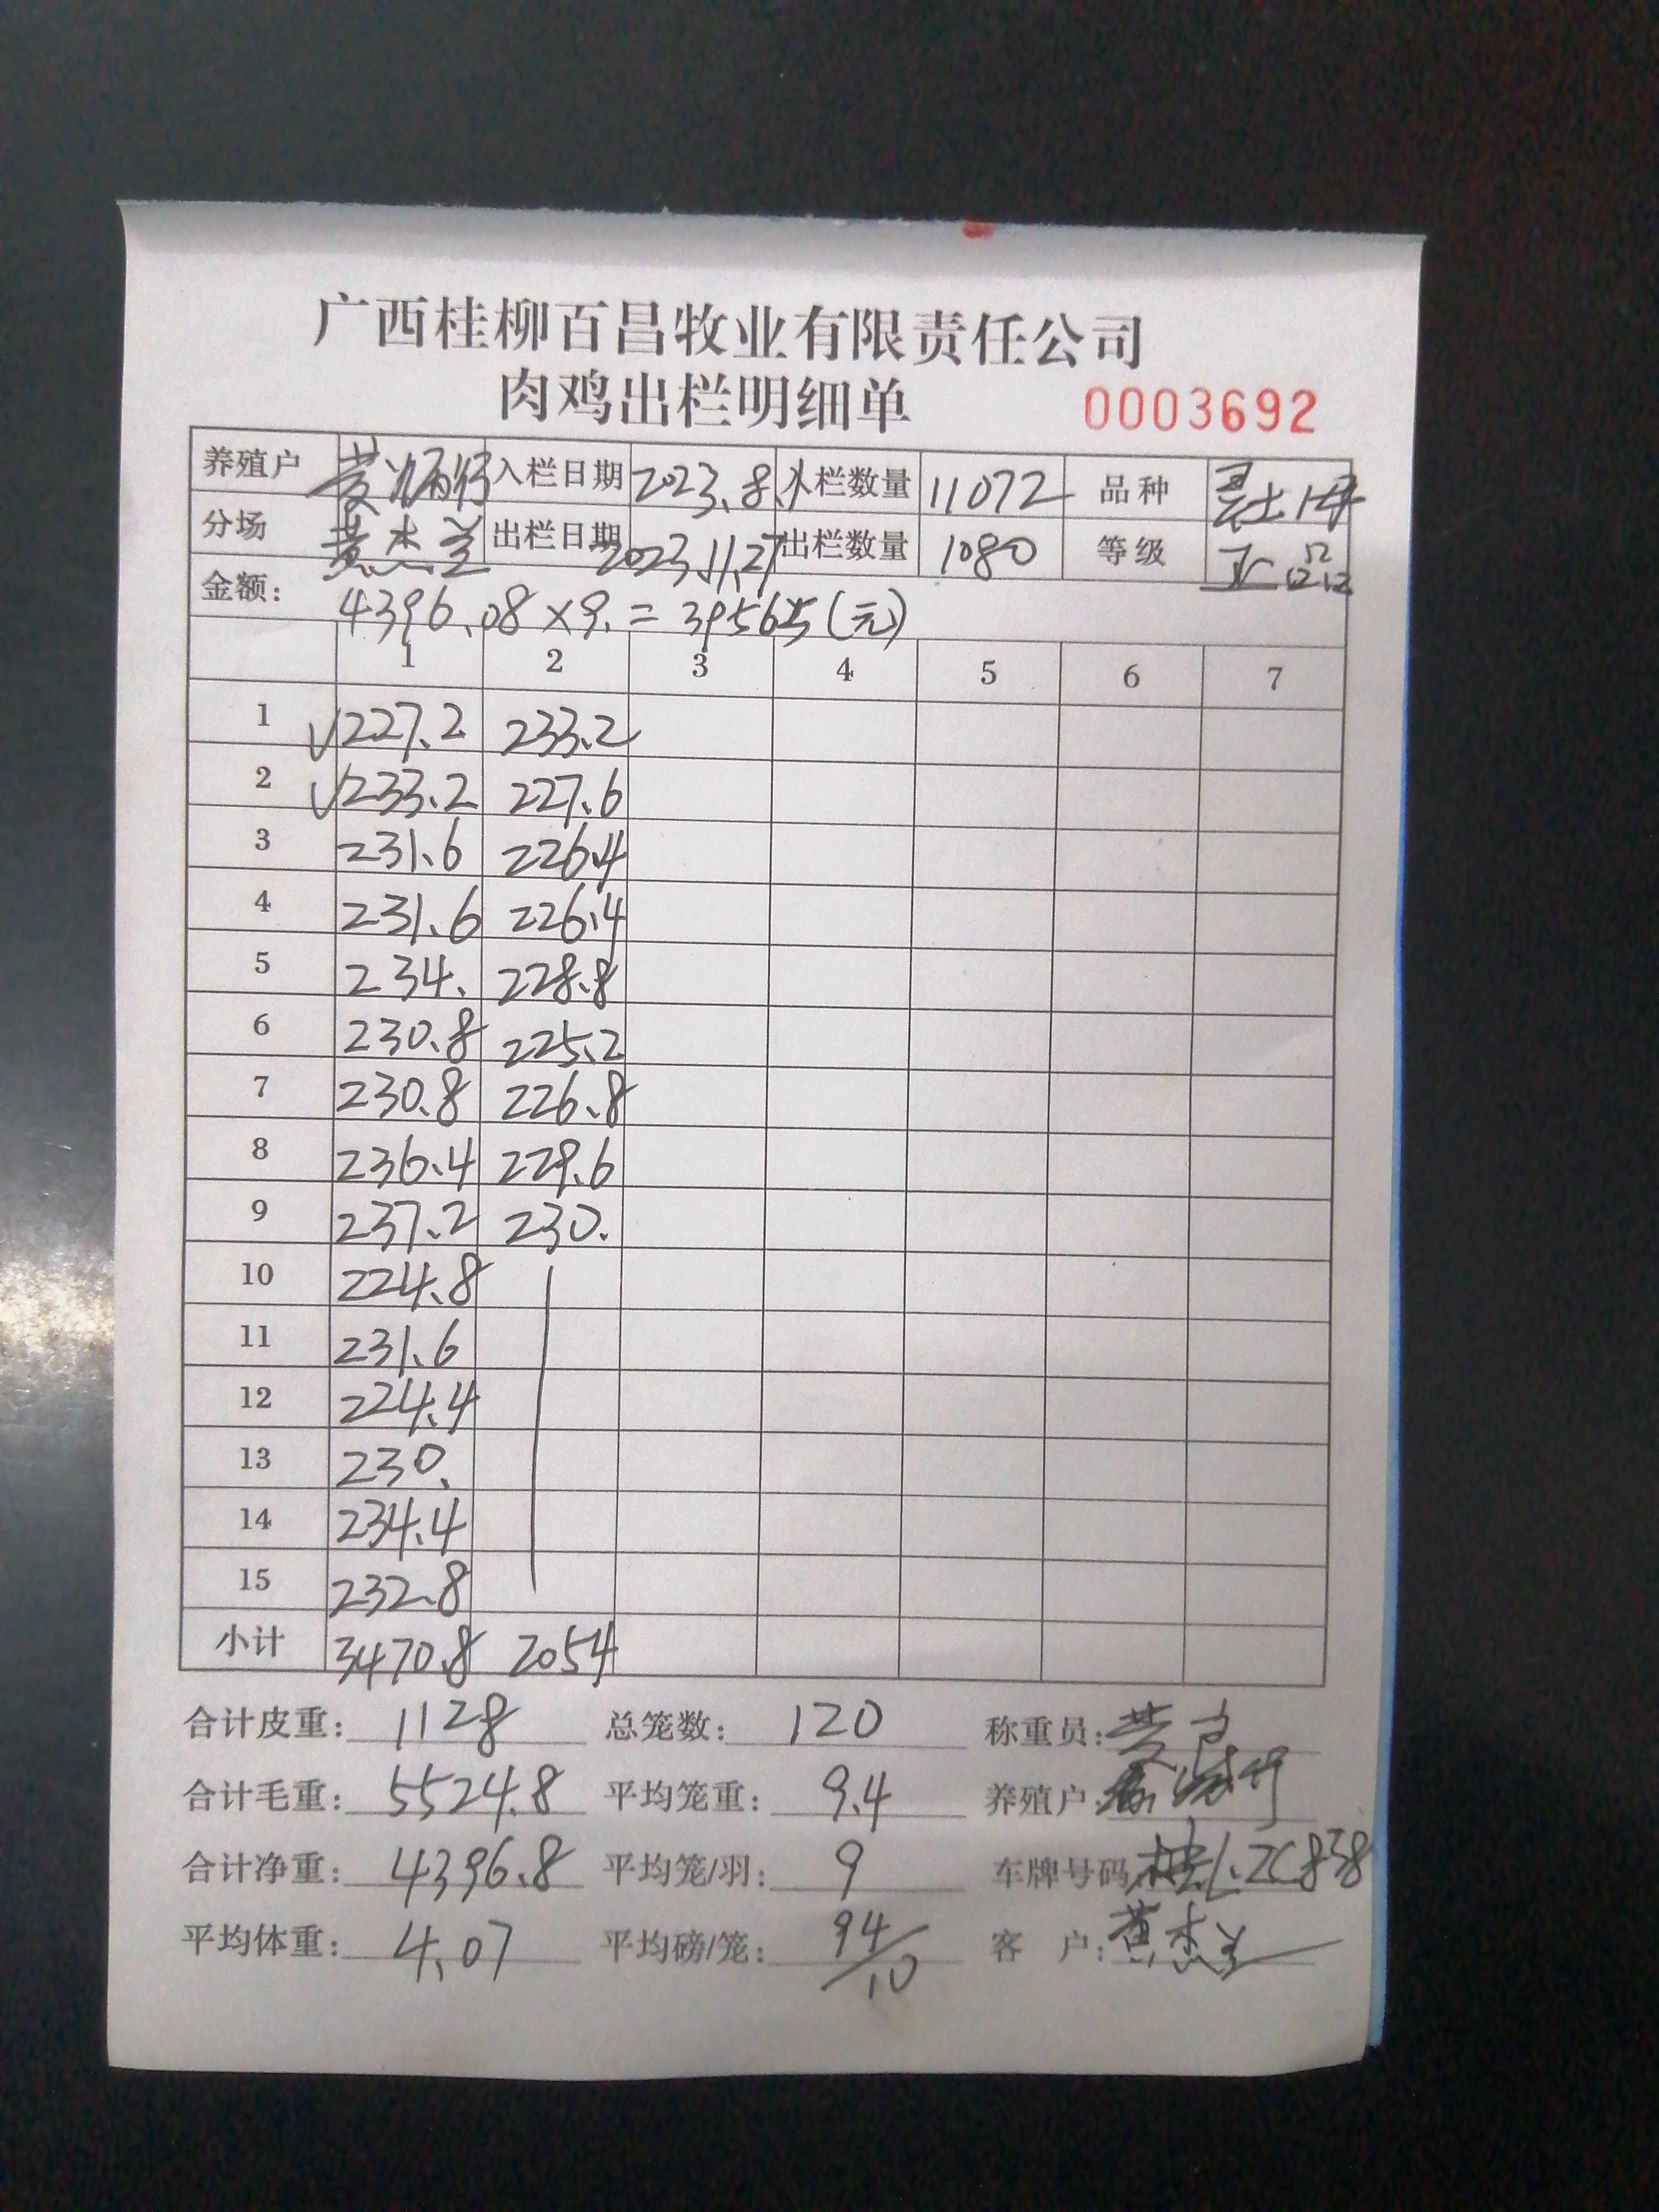 广西桂柳百昌牧业有限责任公司
肉鸡出栏明细单 0003692
养殖户 黄炳 入栏日期 2023.8. 入栏数量 11072 品种 土
分场 黄杰兰 出栏日期 2023.11.27 出栏数量 1080 等级 正品
金额: 4396.08×9.=39565(元)
1 2 3 4 5 6 7
1 √227.2 233.2
2 √233.2 227.6
3 231.6 226.4
4 231.6 226.4
5 234. 228.8
6 230.8 225.2
7 230.8 226.8
8 236.4 229.6
9 237.2 230.
10 224.8
11 231.6
12 224.4
13 230.
14 234.4
15 232.8
小计 3470.8 2054
合计皮重: 1128 总笼数: 120 称重员: 黄
合计毛重: 5524.8 平均笼重: 9.4 养殖户:
合计净重: 4396.8 平均笼/羽: 9 车牌号码: 桂L.ZC838
平均体重: 4.07 平均磅/笼: 94/10 客 户: 黄杰兰